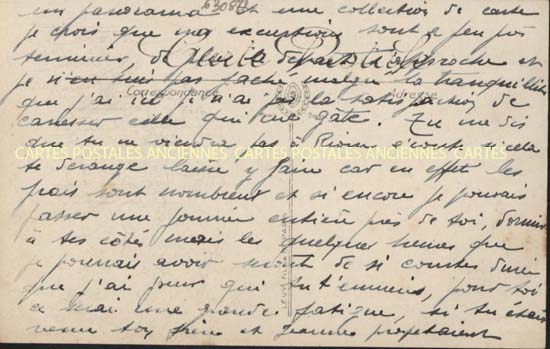 un panorama et une collection de carte
630848
je crois que mes excursions sont à peu près
terminées, de plus le départ approche et
je n'en suis pas fâché malgré la tranquillité
que j'ai ici je n'ai pas la satisfaction de
Correspondance Adresse
caresser celle qui me gâte. Tu me dis
que tu ne viendras pas à Riom écoute si cela
CARTES POSTALES ANCIENNES CARTES POSTALES ANCIENNES CARTES
te dérange laisse y faire car en effet les
frais sont nombreux et si encore je pouvais
passer une journée entière près de toi, dormir
à tes côtés mais les quelques heures que
je pourrais avoir seront de si courtes durée
que j'ai peur qui t'ennuies, pour toi
ce serait une grande fatigue, si tu étais
venue ton frère et Jeanne profitaient